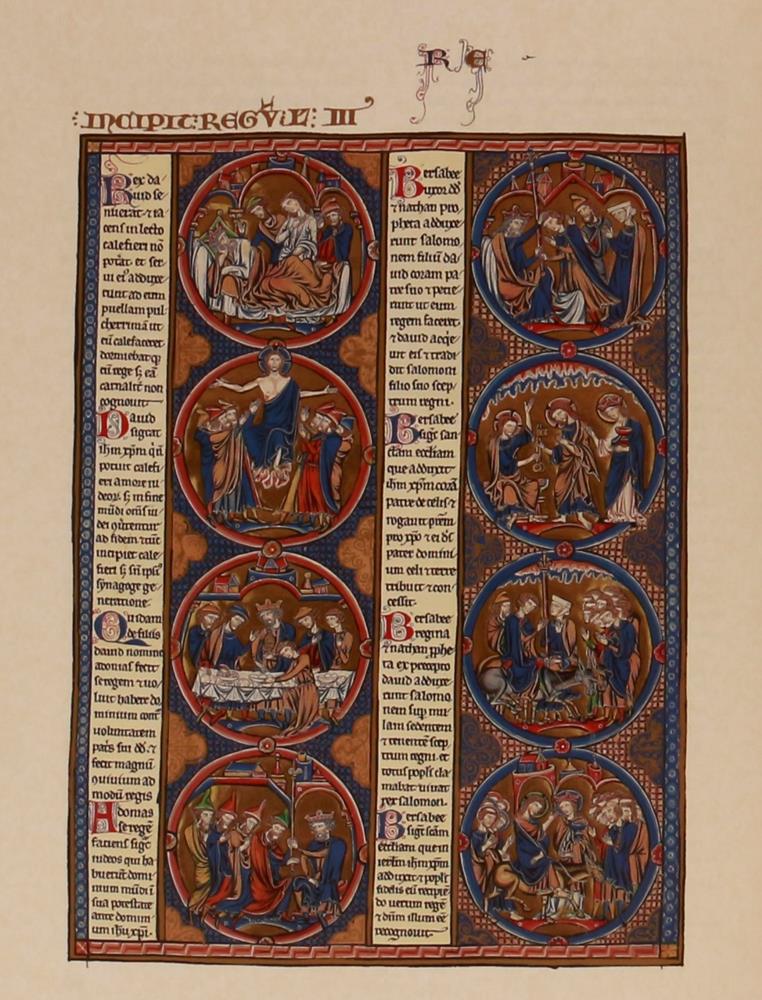 R E
INCIPIT: REGVM: III
Rex da
uid se
nuerat ⁊ ia
cens in lecto
calefieri nō
poterat et ser
ui ei⁹ adduxe
runt ad eum
puellam pul
cherrimā ut
eū calefaceret
dormiebat qꝫ
cū rege ⁊ eā
carnalit non
cognouit
Dauid
sigcat
ihm xp̄m q̄
potuit calefi
eri amore iu
deoꝝ ⁊ in fine
mūdi
dei
ad fidem ⁊ tūc
incipiet cale
fieri
synagoge ge
neratione
Quidam
de filiis
dauid nomine
adonias fecit
se regem ⁊ uo
luit habere do
minium cont̄
uoluntatem
patris sui dd ⁊
fecit magnū
conuiuium ad
modū regis
Adonias
se regē
faciens sigt
iudeos qui ha
buerūt domi
nium mūdi ī
sua potestate
ante domin
um ihū xp̄i
Bersabee
uxor dd
⁊ nathan pro
pheta adduxe
runt salomo
nem filiū da
uid coram pa
tre suo ⁊ petie
runt ut eum
regem faceret
⁊ dauid acqe
uit eis ⁊ tradi
dit salomoni
filio suo scep
trum regni
Bersabee
sigt san
ctam eccliam
que adduxit
ihm xp̄m corā
patre de celis ⁊
rogauit prem
pro xpo ⁊ ei ds
pater domini
um celi ⁊ terre
tribuit ⁊ con
cessit
Bersabee
regina
⁊ nathan pphe
ta ex precepto
dauid adduxe
runt salomo
nem sup mu
lam sedentem
⁊ tenente scep
trum regni et
totus popls cla
mabat uiuat
rex salomon
Bersabee
sigt scām
eccliam que in
ierlm ihm xp̄m
adduxit ⁊ popls
fidelis eū recipie
do uerum regē
⁊ dnm illum eē
recognouit